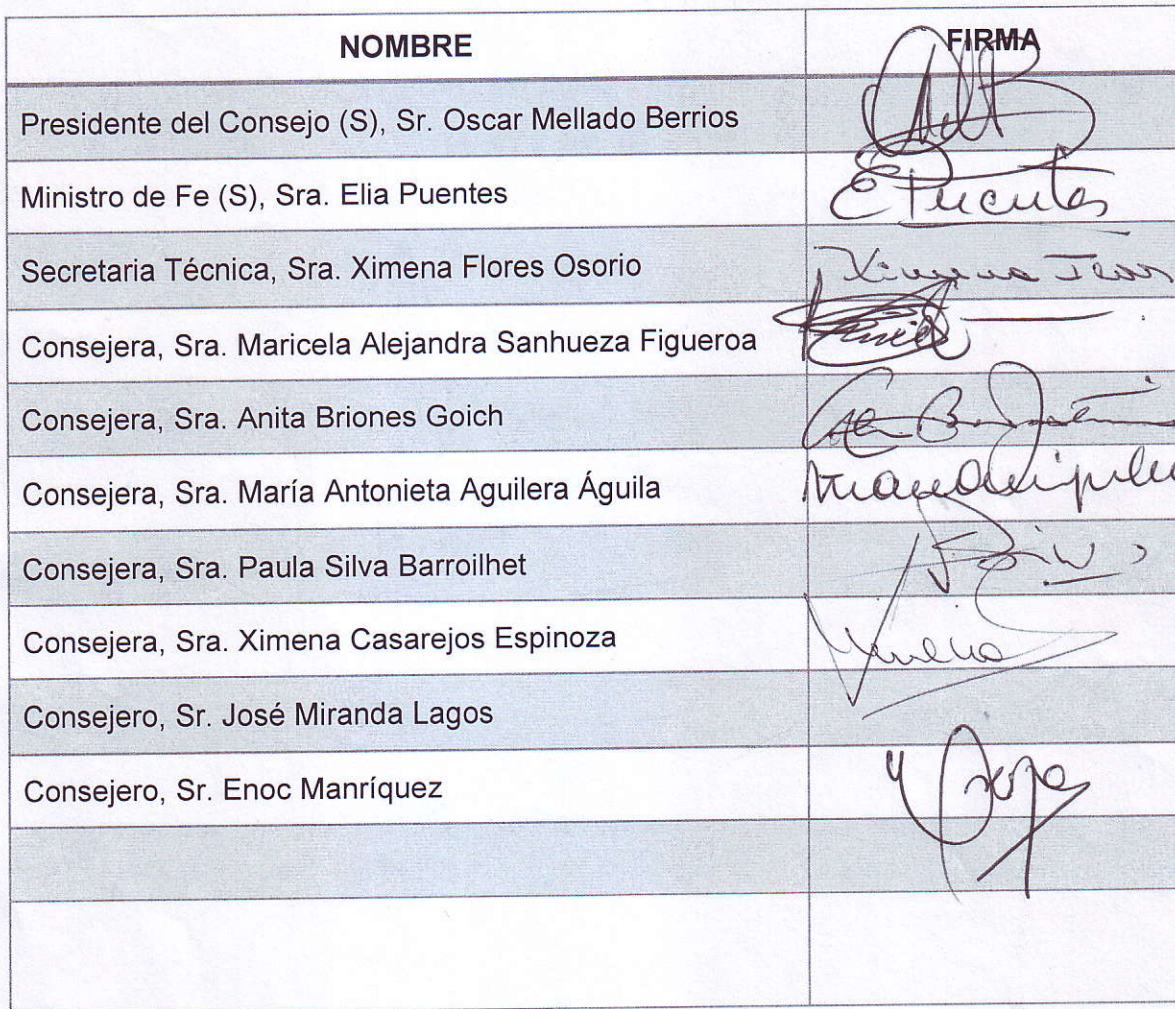 NOMBRE FIRMA
Presidente del Consejo (S), Sr. Oscar Mellado Berrios
Ministro de Fe (S), Sra. Elia Puentes EPuentes
Secretaria Técnica, Sra. Ximena Flores Osorio Ximena
Consejera, Sra. Maricela Alejandra Sanhueza Figueroa
Consejera, Sra. Anita Briones Goich
Consejera, Sra. María Antonieta Aguilera Águila
Consejera, Sra. Paula Silva Barroilhet
Consejera, Sra. Ximena Casarejos Espinoza
Consejero, Sr. José Miranda Lagos
Consejero, Sr. Enoc Manríquez